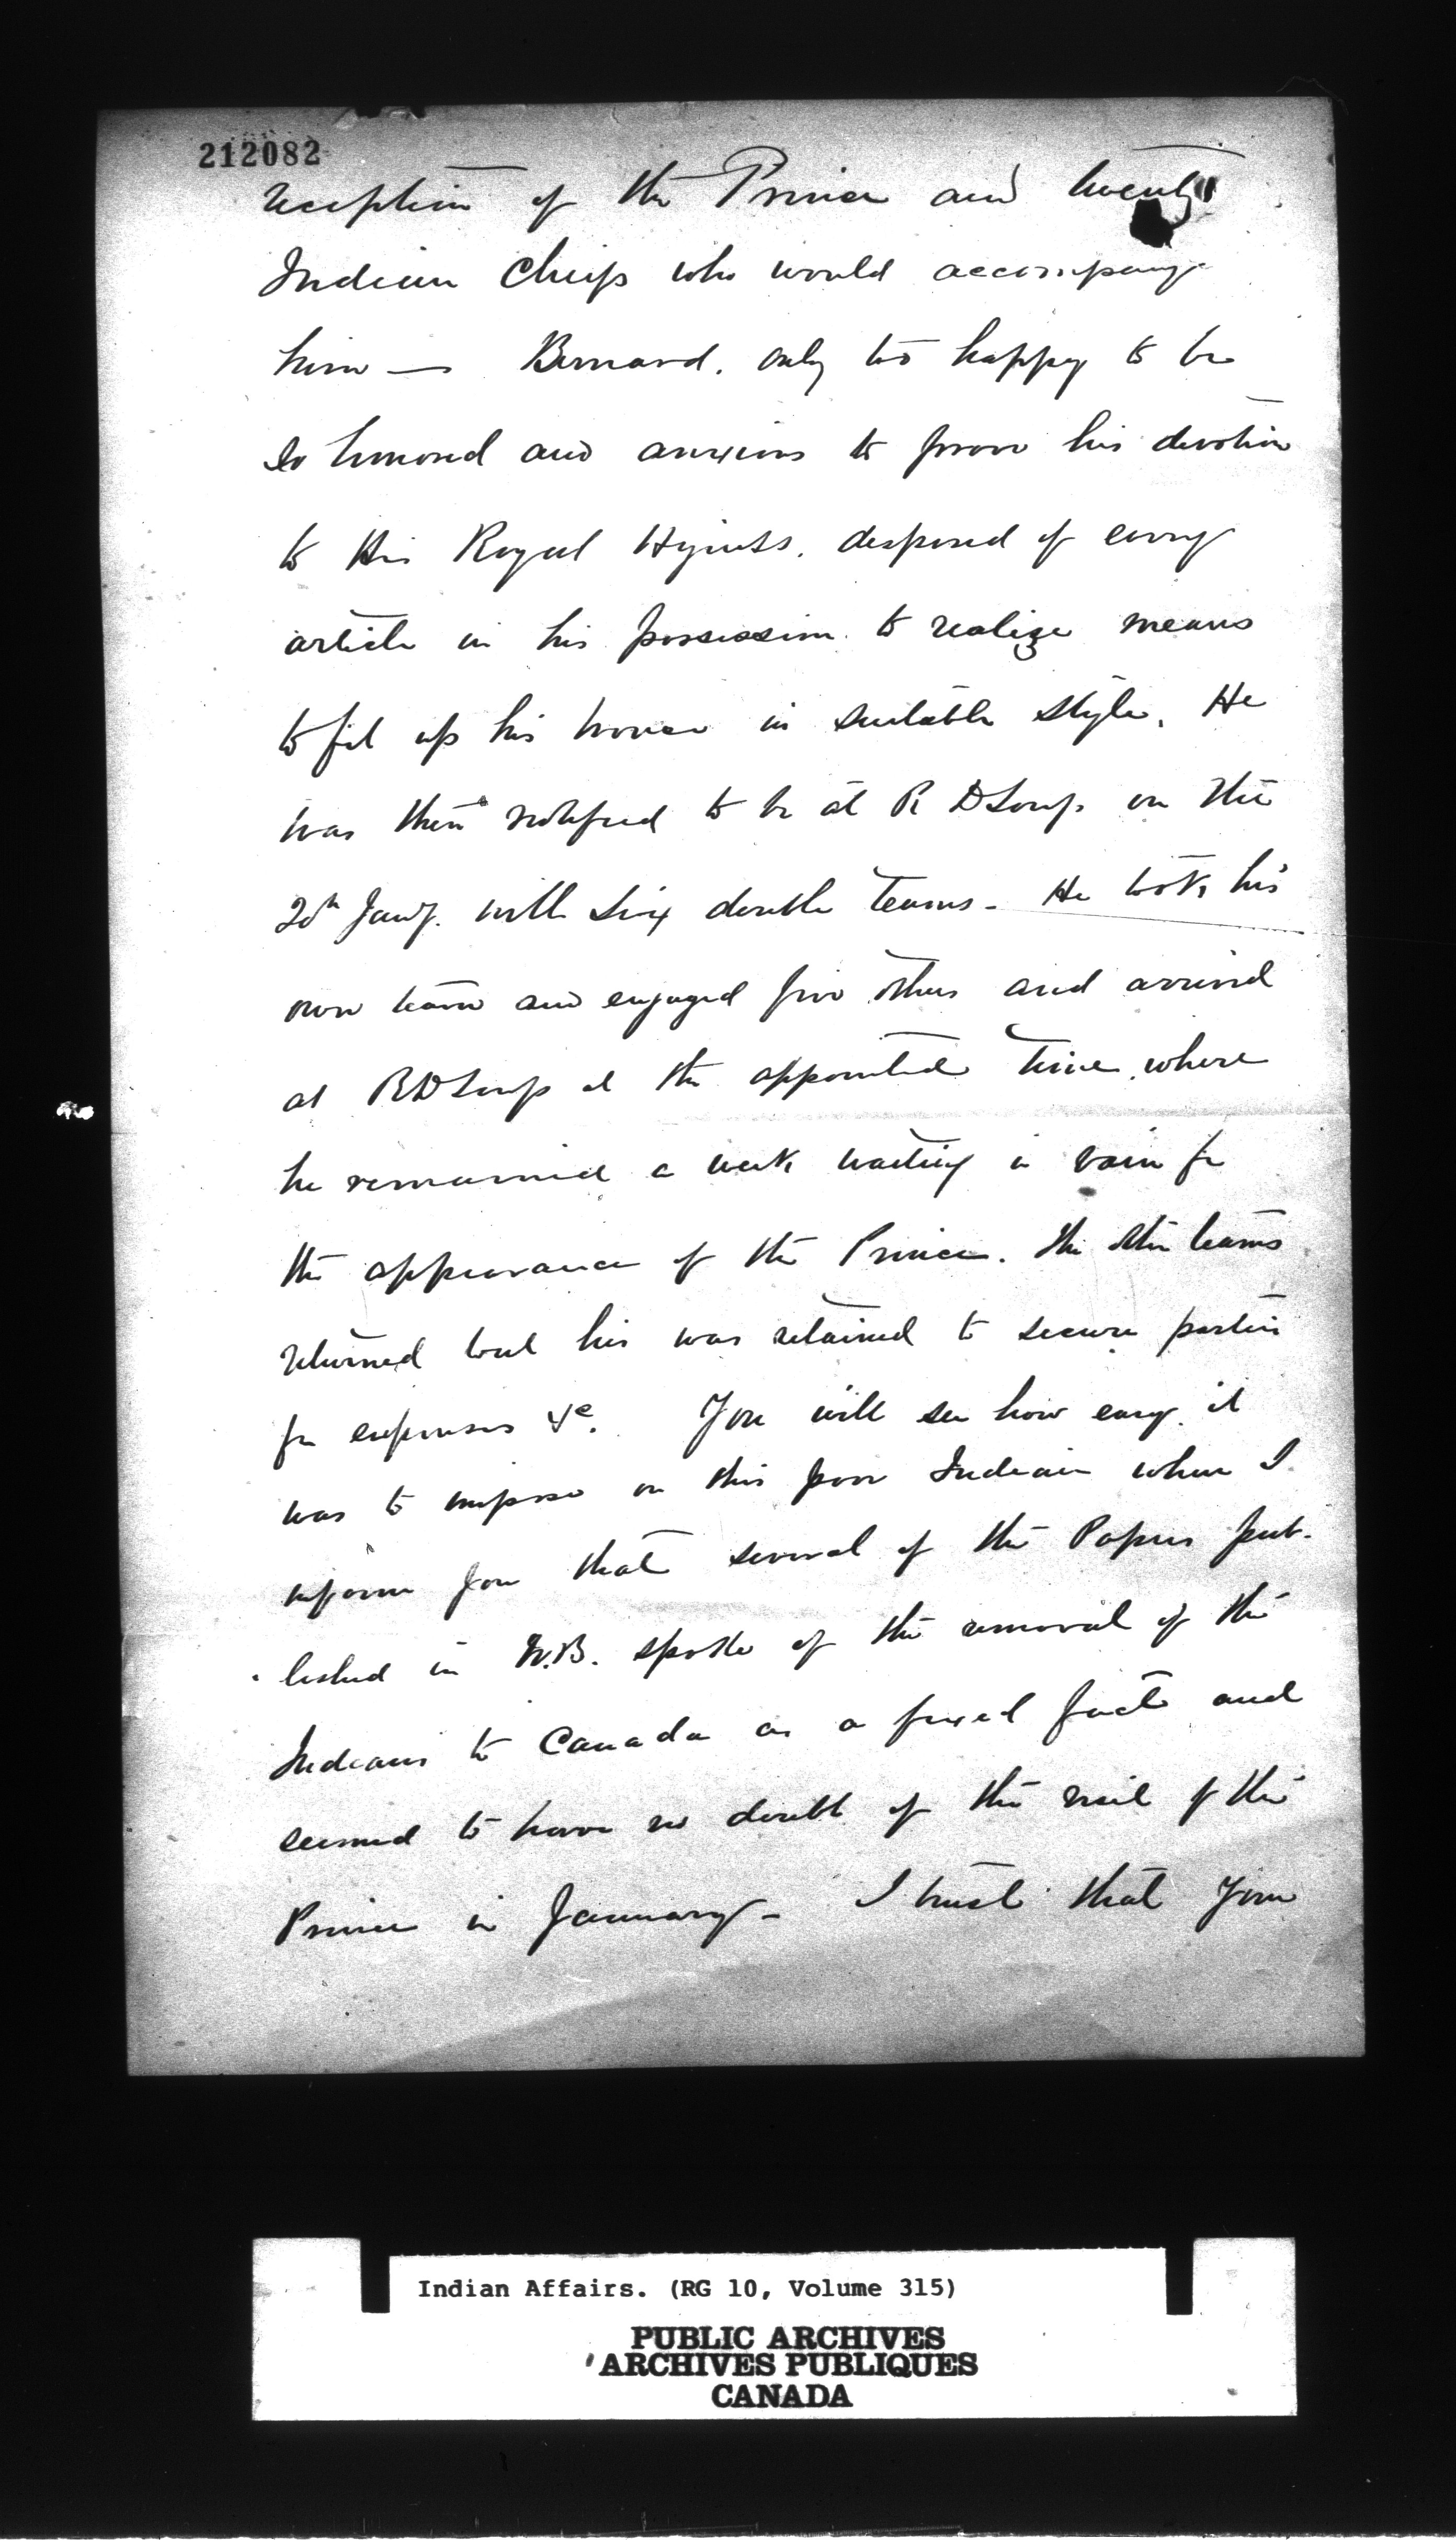 212082
reception of the Prince and twenty
Indian Chiefs who would accompany
him — Bernard, only too happy to be
so honored and anxious to prove his devotion
to His Royal Hyness, desposed of every
article in his possession to realize means
to fit up his house in suitable style. He
was then notified to be at R D Loup on the
20th Jany. with six double teams - He took his
own team and engaged five others and arrived
at R D Loup at the appointed time, where
he remained a week waiting in vain for
the appearance of the Prince. The other teams
returned but his was retained to secure parties
for expenses &c. You will see how easy it
was to impose on this poor Indian when I
inform you that several of the Papers pub-
-lished in N.B. spoke of the removal of the
Indians to Canada as a fixed fact and
seemed to have no doubt of the visit of the
Prince in January - I trust that your
Indian Affairs. (RG 10, Volume 315)
PUBLIC ARCHIVES
ARCHIVES PUBLIQUES
CANADA